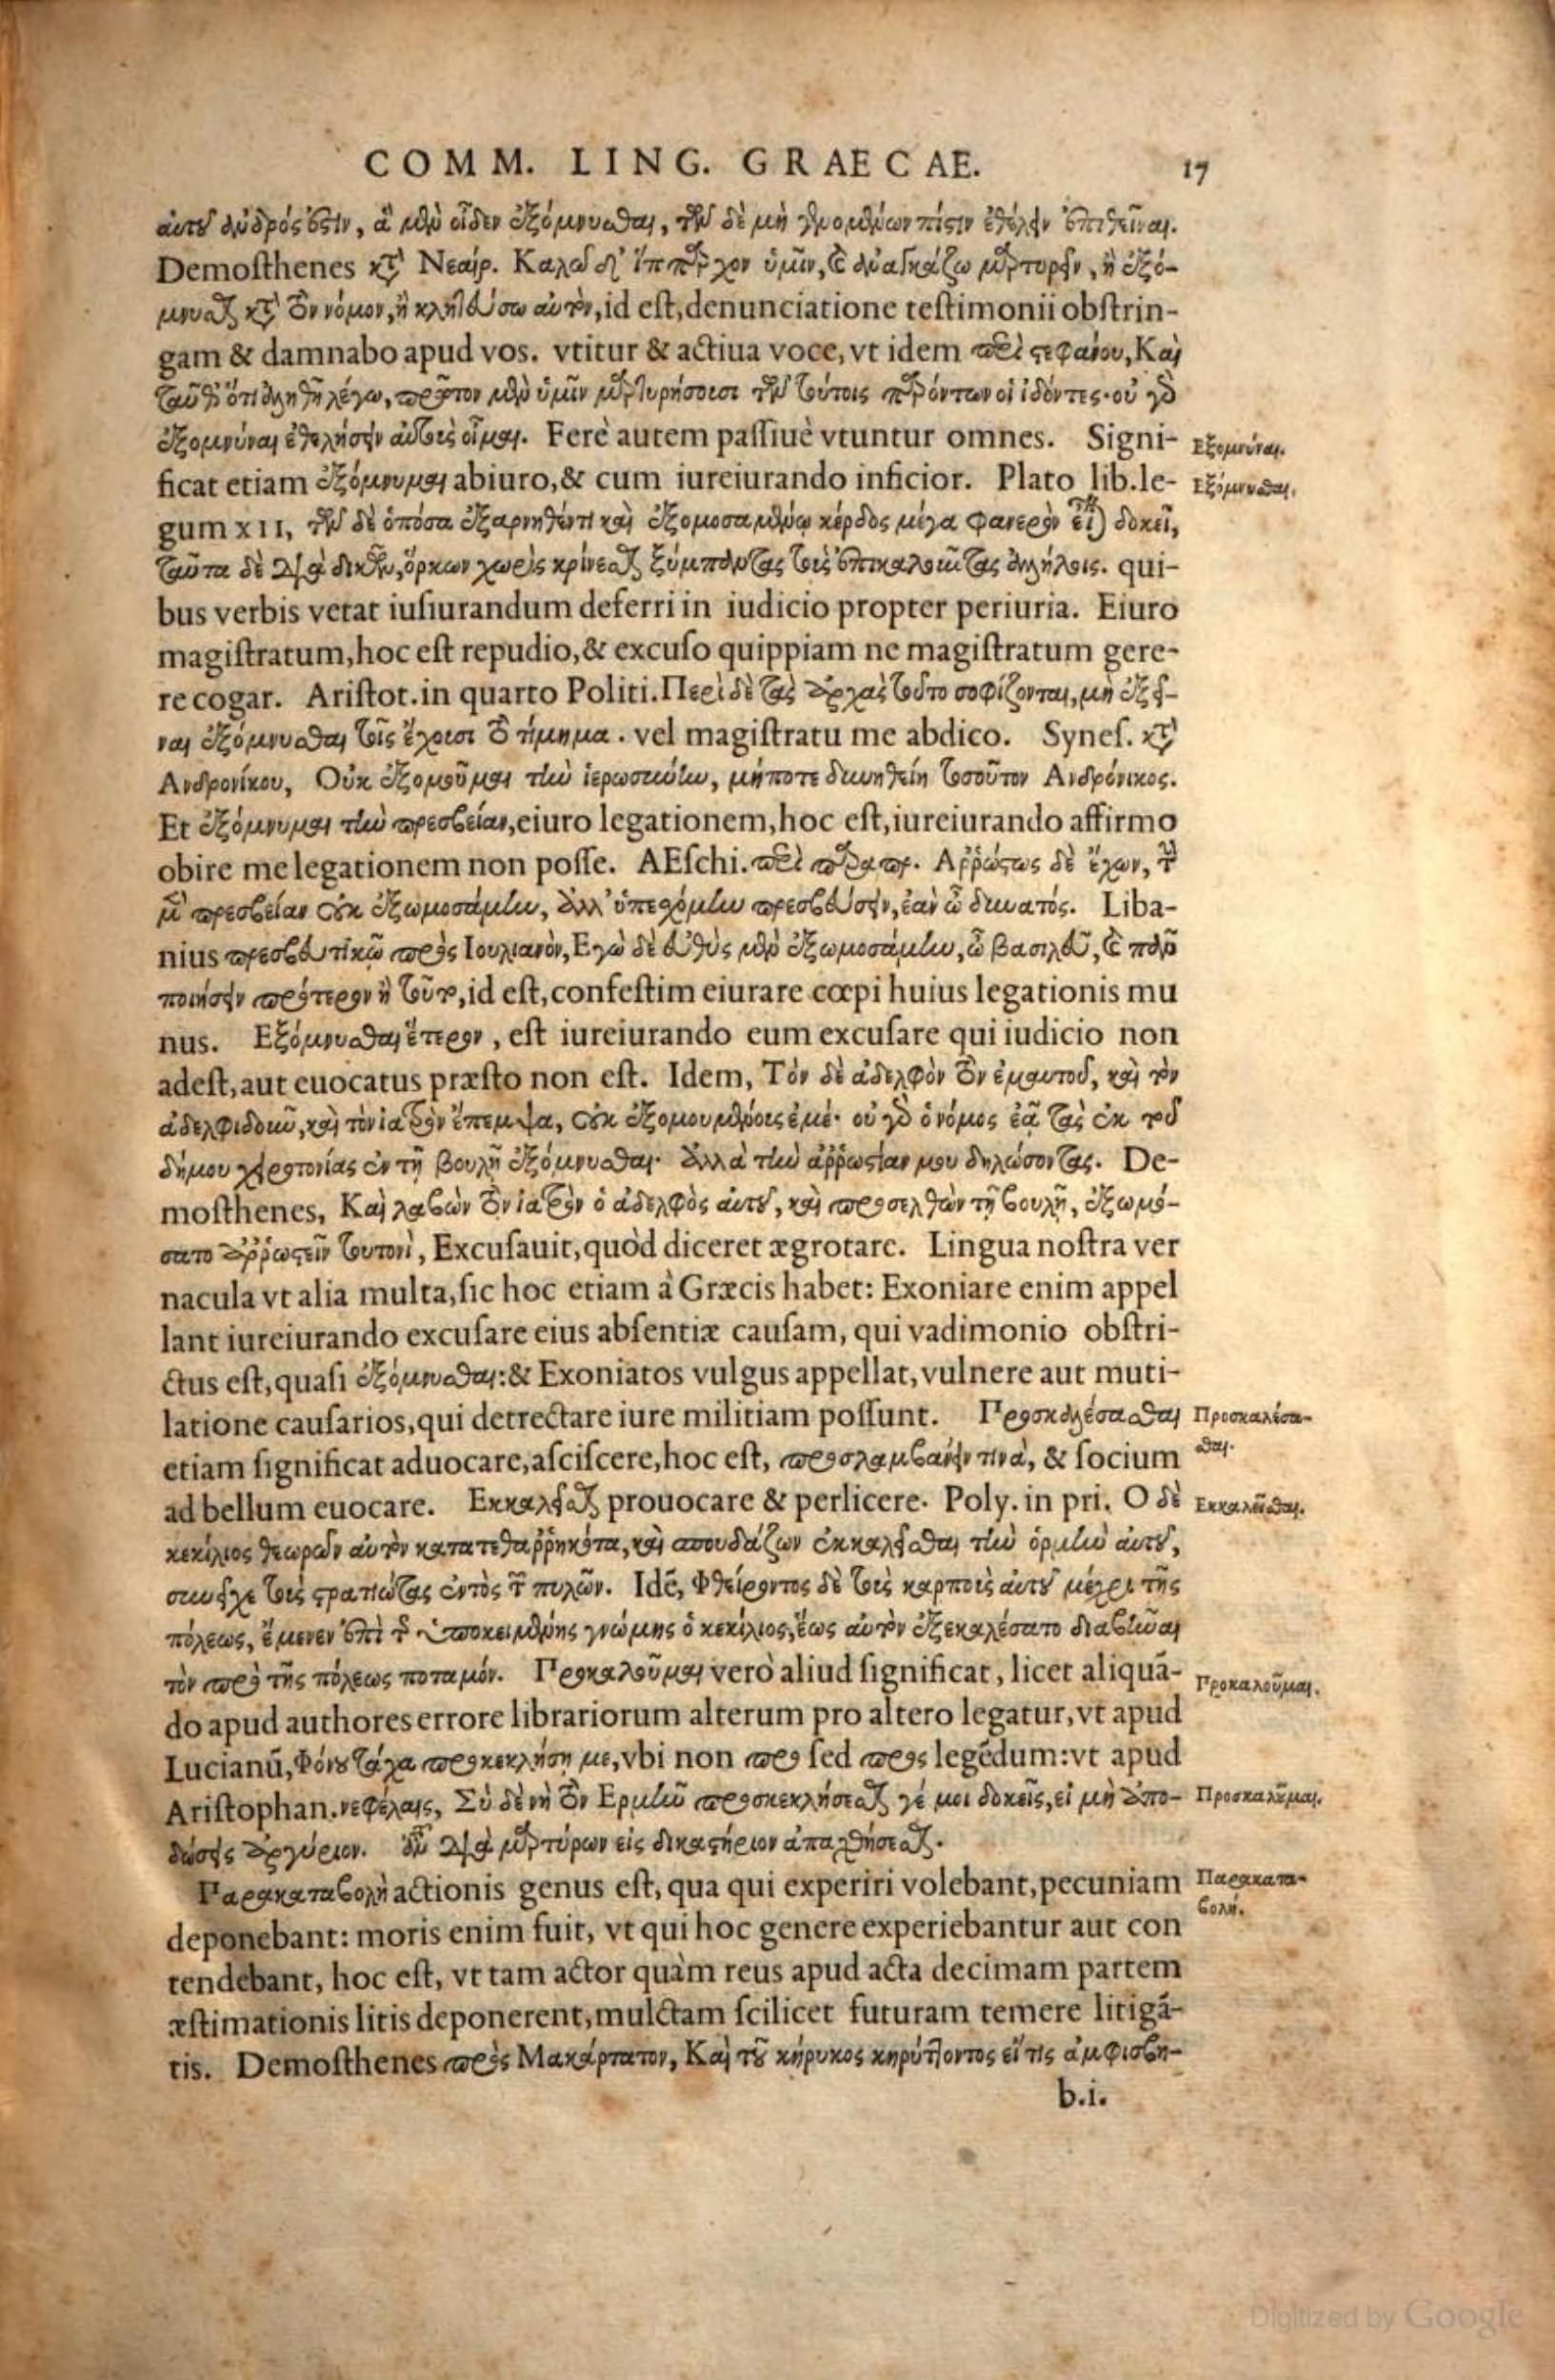 COMM. LING. GRAECAE. 17
αὐτοῦ ἀνδρός ἐστιν, ἃ μὲν οἶδεν ἐξόμνυσθαι, τῶν δὲ μὴ γενομένων πίστιν ἐθέλειν ἐπιθεῖναι.
Demosthenes κατὰ Νεαίρ. Καλῶ δ' Ἵππαρχον ὑμῖν, καὶ ἀναγκάζω μαρτυρεῖν, ἢ ἐξό-
μνυσθαι κατὰ τὸν νόμον, ἢ κλητεύσω αὐτὸν, id est, denunciatione testimonii obstrin-
gam & damnabo apud vos. vtitur & actiua voce, vt idem περὶ στεφάνου, Καὶ
ταῦθ' ὅτι ἀληθῆ λέγω, πρῶτον μὲν ὑμῖν μαρτυρήσουσι τῶν τούτοις παρόντων οἱ ἰδόντες· οὐ γὰρ
ἐξομνύναι ἐθελήσειν αὐτοὺς οἶμαι. Ferè autem passiuè vtuntur omnes. Signi- Εξομνύναι.
ficat etiam ἐξόμνυμαι abiuro, & cum iureiurando inficior. Plato lib.le- Εξόμνυσθαι.
gum XII, τῶν δὲ ὁπόσα ἐξαρνηθέντι καὶ ἐξομοσαμένῳ κέρδος μέγα φανερὸν εἶναι δοκεῖ,
ταῦτα δὲ διὰ δικῶν, ὅρκων χωρὶς κρίνεσθαι ξύμπαντας τοὺς ἐπικαλοῦντας ἀλλήλοις. qui-
bus verbis vetat iusiurandum deferri in iudicio propter periuria. Eiuro
magistratum, hoc est repudio, & excuso quippiam ne magistratum gere-
re cogar. Aristot. in quarto Politi. Περὶ δὲ τὰς ἀρχὰς τοῦτο σοφίζονται, μὴ ἐξεῖ-
ναι ἐξόμνυσθαι τοῖς ἔχουσι τὸ τίμημα. vel magistratu me abdico. Synes. κατὰ
Ανδρονίκου, Οὐκ ἐξομοῦμαι τὴν ἱερωσύνην, μήποτε δυνηθείη τοσοῦτον Ανδρόνικος.
Et ἐξόμνυμαι τὴν πρεσβείαν, eiuro legationem, hoc est, iureiurando affirmo
obire me legationem non posse. AEschi. περὶ παραπρ. Αῤῥώστως δὲ ἔχων, τὴν
μὲν πρεσβείαν οὐκ ἐξωμοσάμην, ἀλλ' ὑπεσχόμην πρεσβεύσειν, ἐὰν ὦ δυνατός. Liba-
nius πρεσβευτικῷ πρὸς Ιουλιανὸν, Εγὼ δὲ εὐθὺς μὲν ἐξωμοσάμην, ὦ βασιλεῦ, καὶ πᾶν
ποιήσειν πρότερον ἢ τοῦτο, id est, confestim eiurare cœpi huius legationis mu
nus. Εξόμνυσθαι ἕτερον, est iureiurando eum excusare qui iudicio non
adest, aut euocatus præsto non est. Idem, Τὸν δὲ ἀδελφὸν τὸν ἐμαυτοῦ, καὶ τὸν
ἀδελφιδοῦν, καὶ τὸν ἰατρὸν ἔπεμψα, οὐκ ἐξομουμένους ἐμέ· οὐ γὰρ ὁ νόμος ἐᾷ τὰς ἐκ τοῦ
δήμου χειροτονίας ἐν τῇ βουλῇ ἐξόμνυσθαι· ἀλλὰ τὴν ἀῤῥωστίαν μου δηλώσοντας. De-
mosthenes, Καὶ λαβὼν τὸν ἰατρὸν ὁ ἀδελφὸς αὐτοῦ, καὶ προσελθὼν τῇ βουλῇ, ἐξωμό-
σατο ἀῤῥωστεῖν τουτονὶ, Excusauit, quòd diceret ægrotare. Lingua nostra ver
nacula vt alia multa, sic hoc etiam à Græcis habet: Exoniare enim appel
lant iureiurando excusare eius absentiæ causam, qui vadimonio obstri-
ctus est, quasi ἐξόμνυσθαι: & Exoniatos vulgus appellat, vulnere aut muti-
latione causarios, qui detrectare iure militiam possunt. Προσκαλέσασθαι Προσκαλέσα-
etiam significat aduocare, asciscere, hoc est, προσλαμβάνειν τινὰ, & socium σθαι.
ad bellum euocare. Εκκαλεῖσθαι prouocare & perlicere. Poly. in pri. Ο δὲ Εκκαλεῖσθαι.
κεκίλιος θεωρῶν αὐτὸν κατατεθαῤῥηκότα, καὶ σπουδάζων ἐκκαλεῖσθαι τὴν ὁρμὴν αὐτοῦ,
συνεῖχε τοὺς στρατιώτας ἐντὸς τῶν πυλῶν. Idē, Φθείροντος δὲ τοὺς καρποὺς αὐτοῦ μέχρι τῆς
πόλεως, ἔμενεν ἐπὶ τῆς ὑποκειμένης γνώμης ὁ κεκίλιος, ἕως αὐτὸν ἐξεκαλέσατο διαβῆναι
τὸν πρὸ τῆς πόλεως ποταμόν. Προκαλοῦμαι verò aliud significat, licet aliquā- Προκαλοῦμαι.
do apud authores errore librariorum alterum pro altero legatur, vt apud
Lucianū, Φόνου τάχα προκεκλήσῃ με, vbi non προ sed προς legēdum: vt apud
Aristophan. νεφέλαις, Σὺ δὲ νὴ τὸν Ερμῆν προσκεκλήσεσθαι γέ μοι δοκεῖς, εἰ μὴ ἀπο- Προσκαλοῦμαι.
δώσεις ἀργύριον. διὰ μαρτύρων εἰς δικαστήριον ἀπαχθήσεσθαι.
Παρακαταβολὴ actionis genus est, qua qui experiri volebant, pecuniam Παρακατα-
deponebant: moris enim fuit, vt qui hoc genere experiebantur aut con βολή.
tendebant, hoc est, vt tam actor quàm reus apud acta decimam partem
æstimationis litis deponerent, mulctam scilicet futuram temere litigā-
tis. Demosthenes πρὸς Μακάρτατον, Καὶ τοῦ κήρυκος κηρύττοντος εἴ τις ἀμφισβη-
b.i.
Digitized by Google